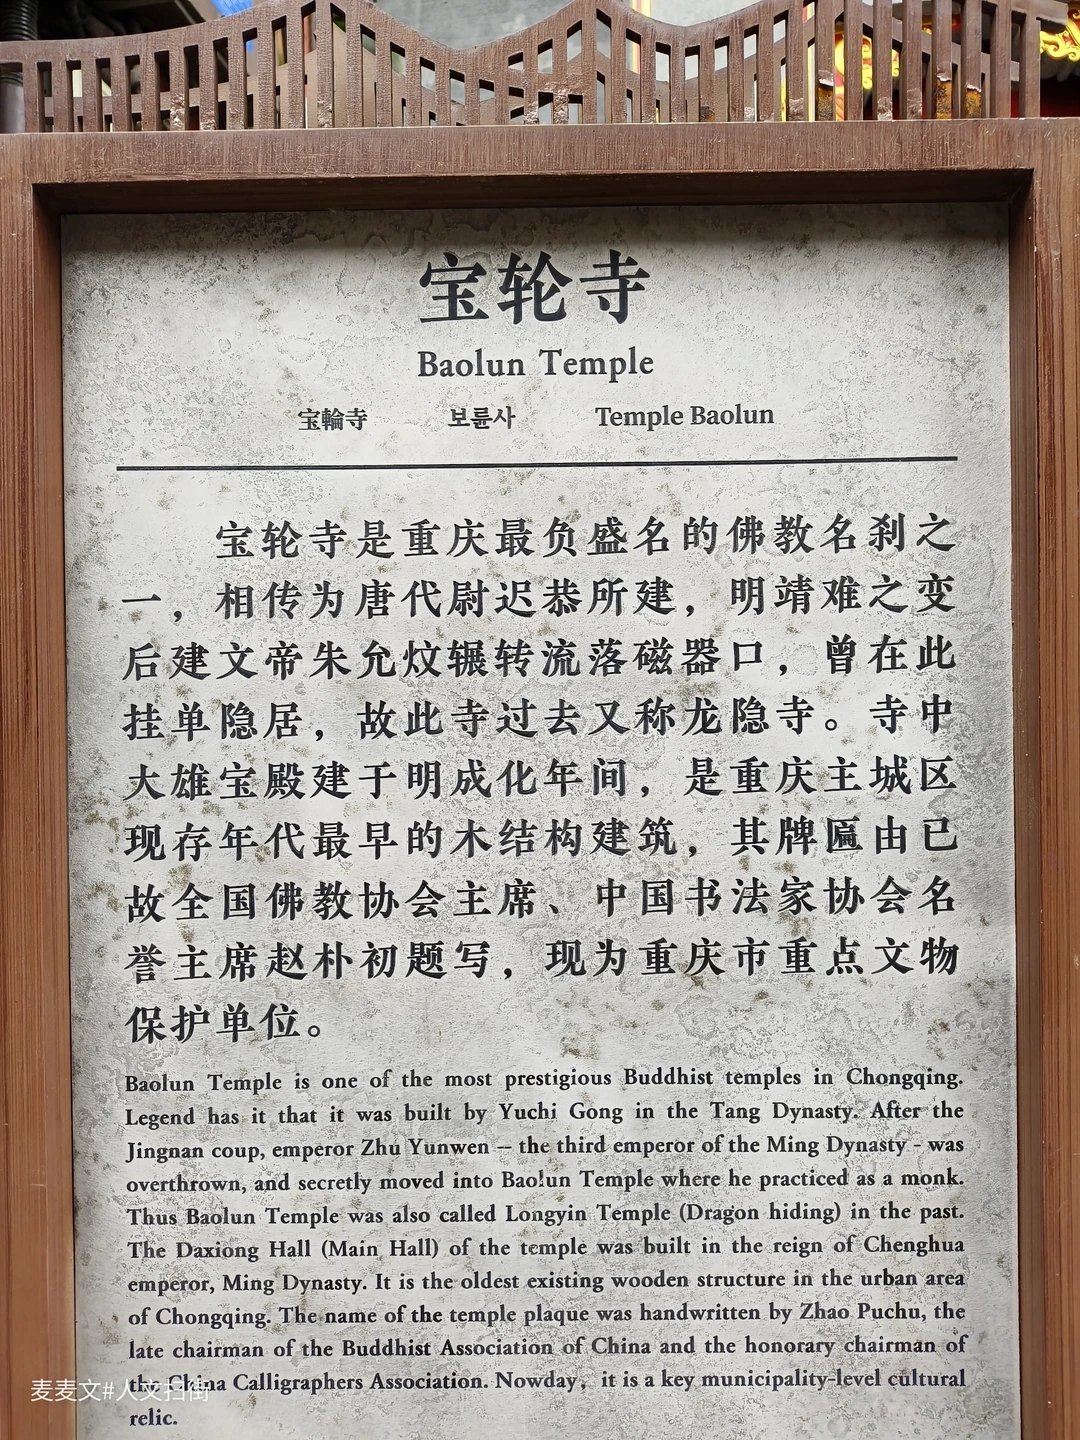 宝轮寺
Baolun Temple
宝輪寺 보륜사 Temple Baolun
宝轮寺是重庆最负盛名的佛教名刹之
一，相传为唐代尉迟恭所建，明靖难之变
后建文帝朱允炆辗转流落磁器口，曾在此
挂单隐居，故此寺过去又称龙隐寺。寺中
大雄宝殿建于明成化年间，是重庆主城区
现存年代最早的木结构建筑，其牌匾由已
故全国佛教协会主席、中国书法家协会名
誉主席赵朴初题写，现为重庆市重点文物
保护单位。
Baolun Temple is one of the most prestigious Buddhist temples in Chongqing.
Legend has it that it was built by Yuchi Gong in the Tang Dynasty. After the
Jingnan coup, emperor Zhu Yunwen – the third emperor of the Ming Dynasty - was
overthrown, and secretly moved into Baolun Temple where he practiced as a monk.
Thus Baolun Temple was also called Longyin Temple (Dragon hiding) in the past.
The Daxiong Hall (Main Hall) of the temple was built in the reign of Chenghua
emperor, Ming Dynasty. It is the oldest existing wooden structure in the urban area
of Chongqing. The name of the temple plaque was handwritten by Zhao Puchu, the
late chairman of the Buddhist Association of China and the honorary chairman of
the China Calligraphers Association. Nowday，it is a key municipality-level cultural
relic.
麦麦文#人文扫街